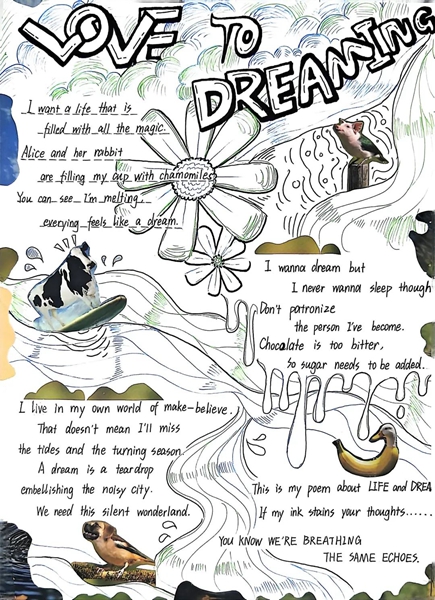 LOVE TO
DREAMING
I want a life that is
filled with all the magic.
Alice and her rabbit
are filling my cup with chamomiles.
You can see I'm melting,
everying feels like a dream.
I wanna dream but
I never wanna sleep though
Don't patronize
the person I've become.
Chocalate is too bitter,
So sugar needs to be added.
I live in my own world of make-believe.
That doesn't mean I'll miss
the tides and the turning season.
A dream is a teardrop
embellishing the noisy city.
We need this silent wonderland.
This is my poem about LIFE and DREA
If my ink stains your thoughts......
YOU KNOW WE'RE BREATHING
THE SAME ECHOES.